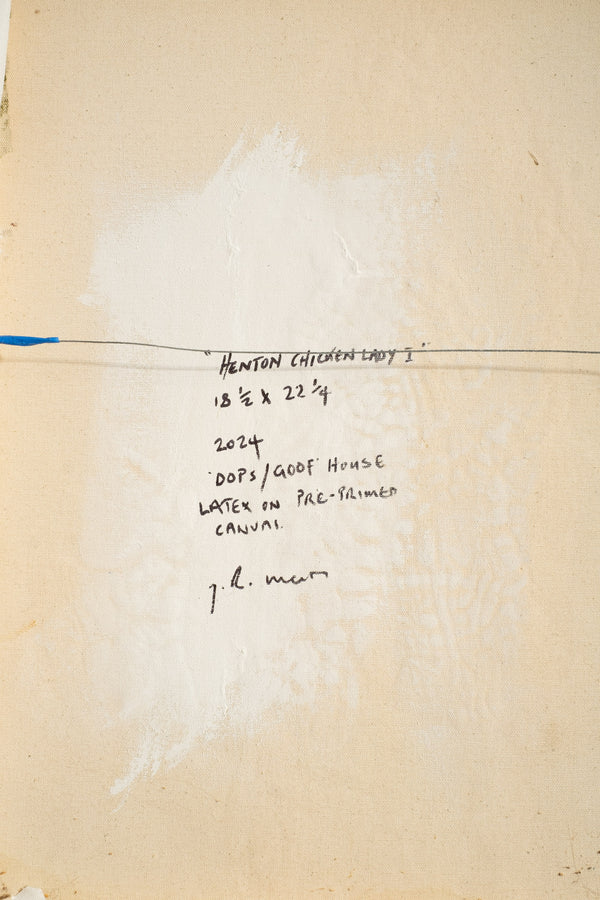 "HENTON CHICKEN LADY I"
18 1/2 X 22 1/4
2024
'OOPS/GOOF' HOUSE
LATEX ON PRE-PRIMED
CANVAS.
J. R.